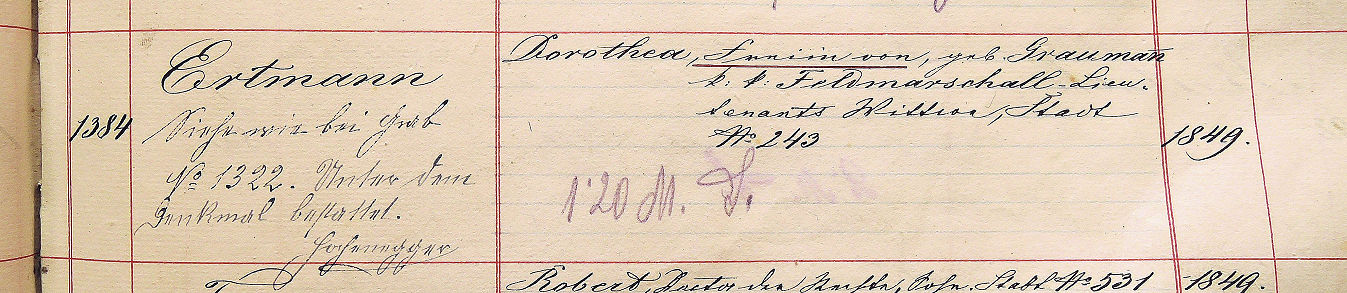 1384
Ertmann
Siehe wie bei Grab
No 1322. Unter dem
Denkmal bestattet.
Hohenegger
Dorothea, Freiin von, geb. Graumañ
k: k: Feldmarschall-Lieu-
tenants Wittwe, Stadt
No 243
1849.
1·20 M. T.
Robert, Doctor der Rechte, Sohn. Stadt No 531
1849.